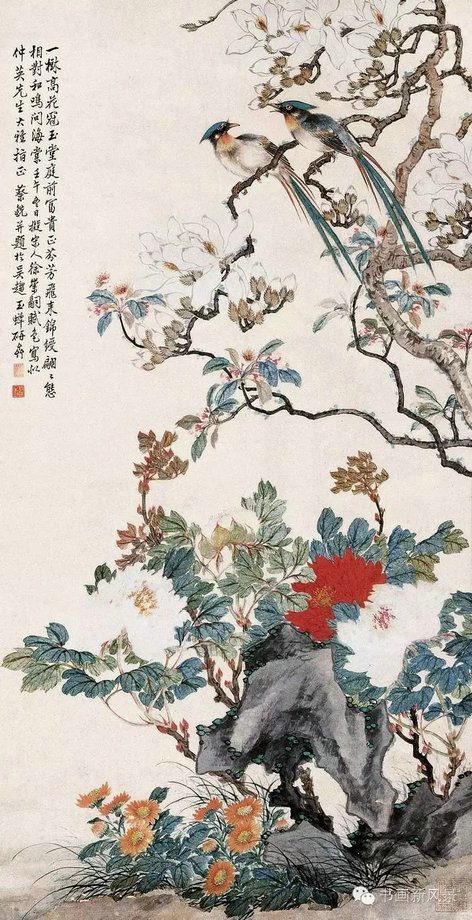 一樹高花冠玉堂庭前富貴正芬芳飛來錦綬翩〻態
相對和鳴問海棠壬午冬日擬宋人徐崇嗣賦色寫似
仲英先生大雅指正 蔡銑并題於吳趨玉蟬研
书画新风景